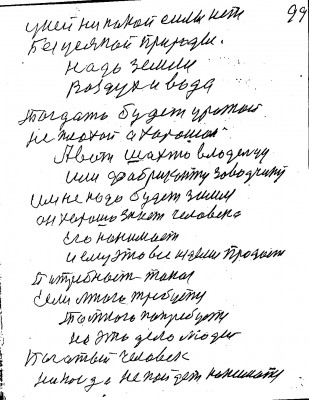 99
у ней никакой силы нет
Без целой природы.
Надо земли
Воздух и вода
Тогда то будет урожай
не плохой а хороший
А вот шахто владельцу
или фабриканту заводчику
им не надо будет земли
он хорошо знает человека
Его нанимает
и ему это все
Потребность такая
Если много требует
то много потребует
на это дело людей
Богатый человек
никогда не пойдет нанимать